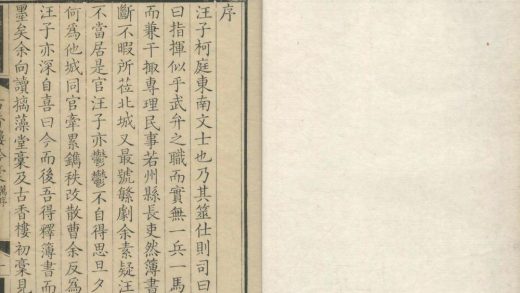 序
汪子柯庭東南文士也乃其筮仕則司
曰指揮似乎武弁之職而實無一兵一馬
而兼干掫專理民事若州縣長吏然簿書
斷不暇所莅北城又最號繁劇余素疑汪
不當居是官汪子亦鬱鬱不自得思旦夕
何爲他城同官牽累鐫秩改散曹余反爲
汪子亦深自喜曰今而後吾得釋簿書而
墨矣余向讀摛藻堂稾及古香樓初稾見
古香樓
序